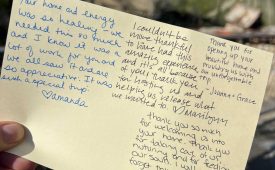 Your home and energy
was so healing - we
needed this so much
and I know it was a
lot of work for you and
we all saw it and are
so appreciative. It was
such a special trip
♡amanda
I couldn't be
more thankful
to have had this
amazing experience
and it's all because
of you! Thank you
for letting us and
helping us release what
we needed to
Thank you for
opening up your
beautiful home and
providing us with
an unforgettable
Joanna + Grace
Thank you so much
for welcoming us into
your home. Thank you
for taking care of us,
our soul. I will
forget